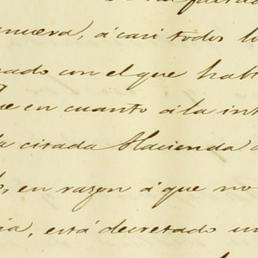 nueva, á casi todos l
ado con el que hab
e en cuanto á la int
a citada Hacienda
, en razon á que no
ia, está decretado un